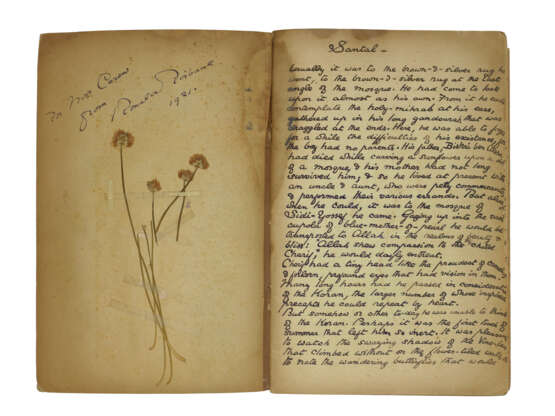 To Mr. Coren
from
Ronald Firbank
1921.
Santal —
Usually it was to the brown-&-silver rug he
went, to the brown-&-silver rug at the East
angle of the mosque. He had come to look
upon it almost as his own. From it he could
contemplate the holy-mihrab at his ease,
gathered up in his long gandourah that was
draggled at the ends. Here, he was able to forget
for a while the difficulties of his existence, for
the boy had no parents. His father, Bishri ben
had died while carving a sunflower upon a
of a mosque, & his mother had not long
survived him, & so he lived at present with
an uncle & aunt, who were petty
& performed their various errands. But
when he could, it was to the mosque of
Sidi-Yossef he came. Gazing up into the vast
cupola of blue-mother-of-pearl he would be
transported to Allah in the realms of beauty &
bliss. "Allah show compassion to thy child
Cherif," he would daily entreat.
Cherif had a tiny head like the proudest of
& forlorn, profound eyes that had vision in them.
Many long hours had he passed in consideration
of the Koran, the larger number of whose inspired
precepts he could repeat by heart.
But somehow or other to-day he was unable to think
of the Koran. Perhaps it was the first kiss of
summer that left him so inert. it was pleasant
to watch the swaying shadow of the vine-leaves
that climbed without on the flower-tiled wall &
to note the wandering butterflies that would